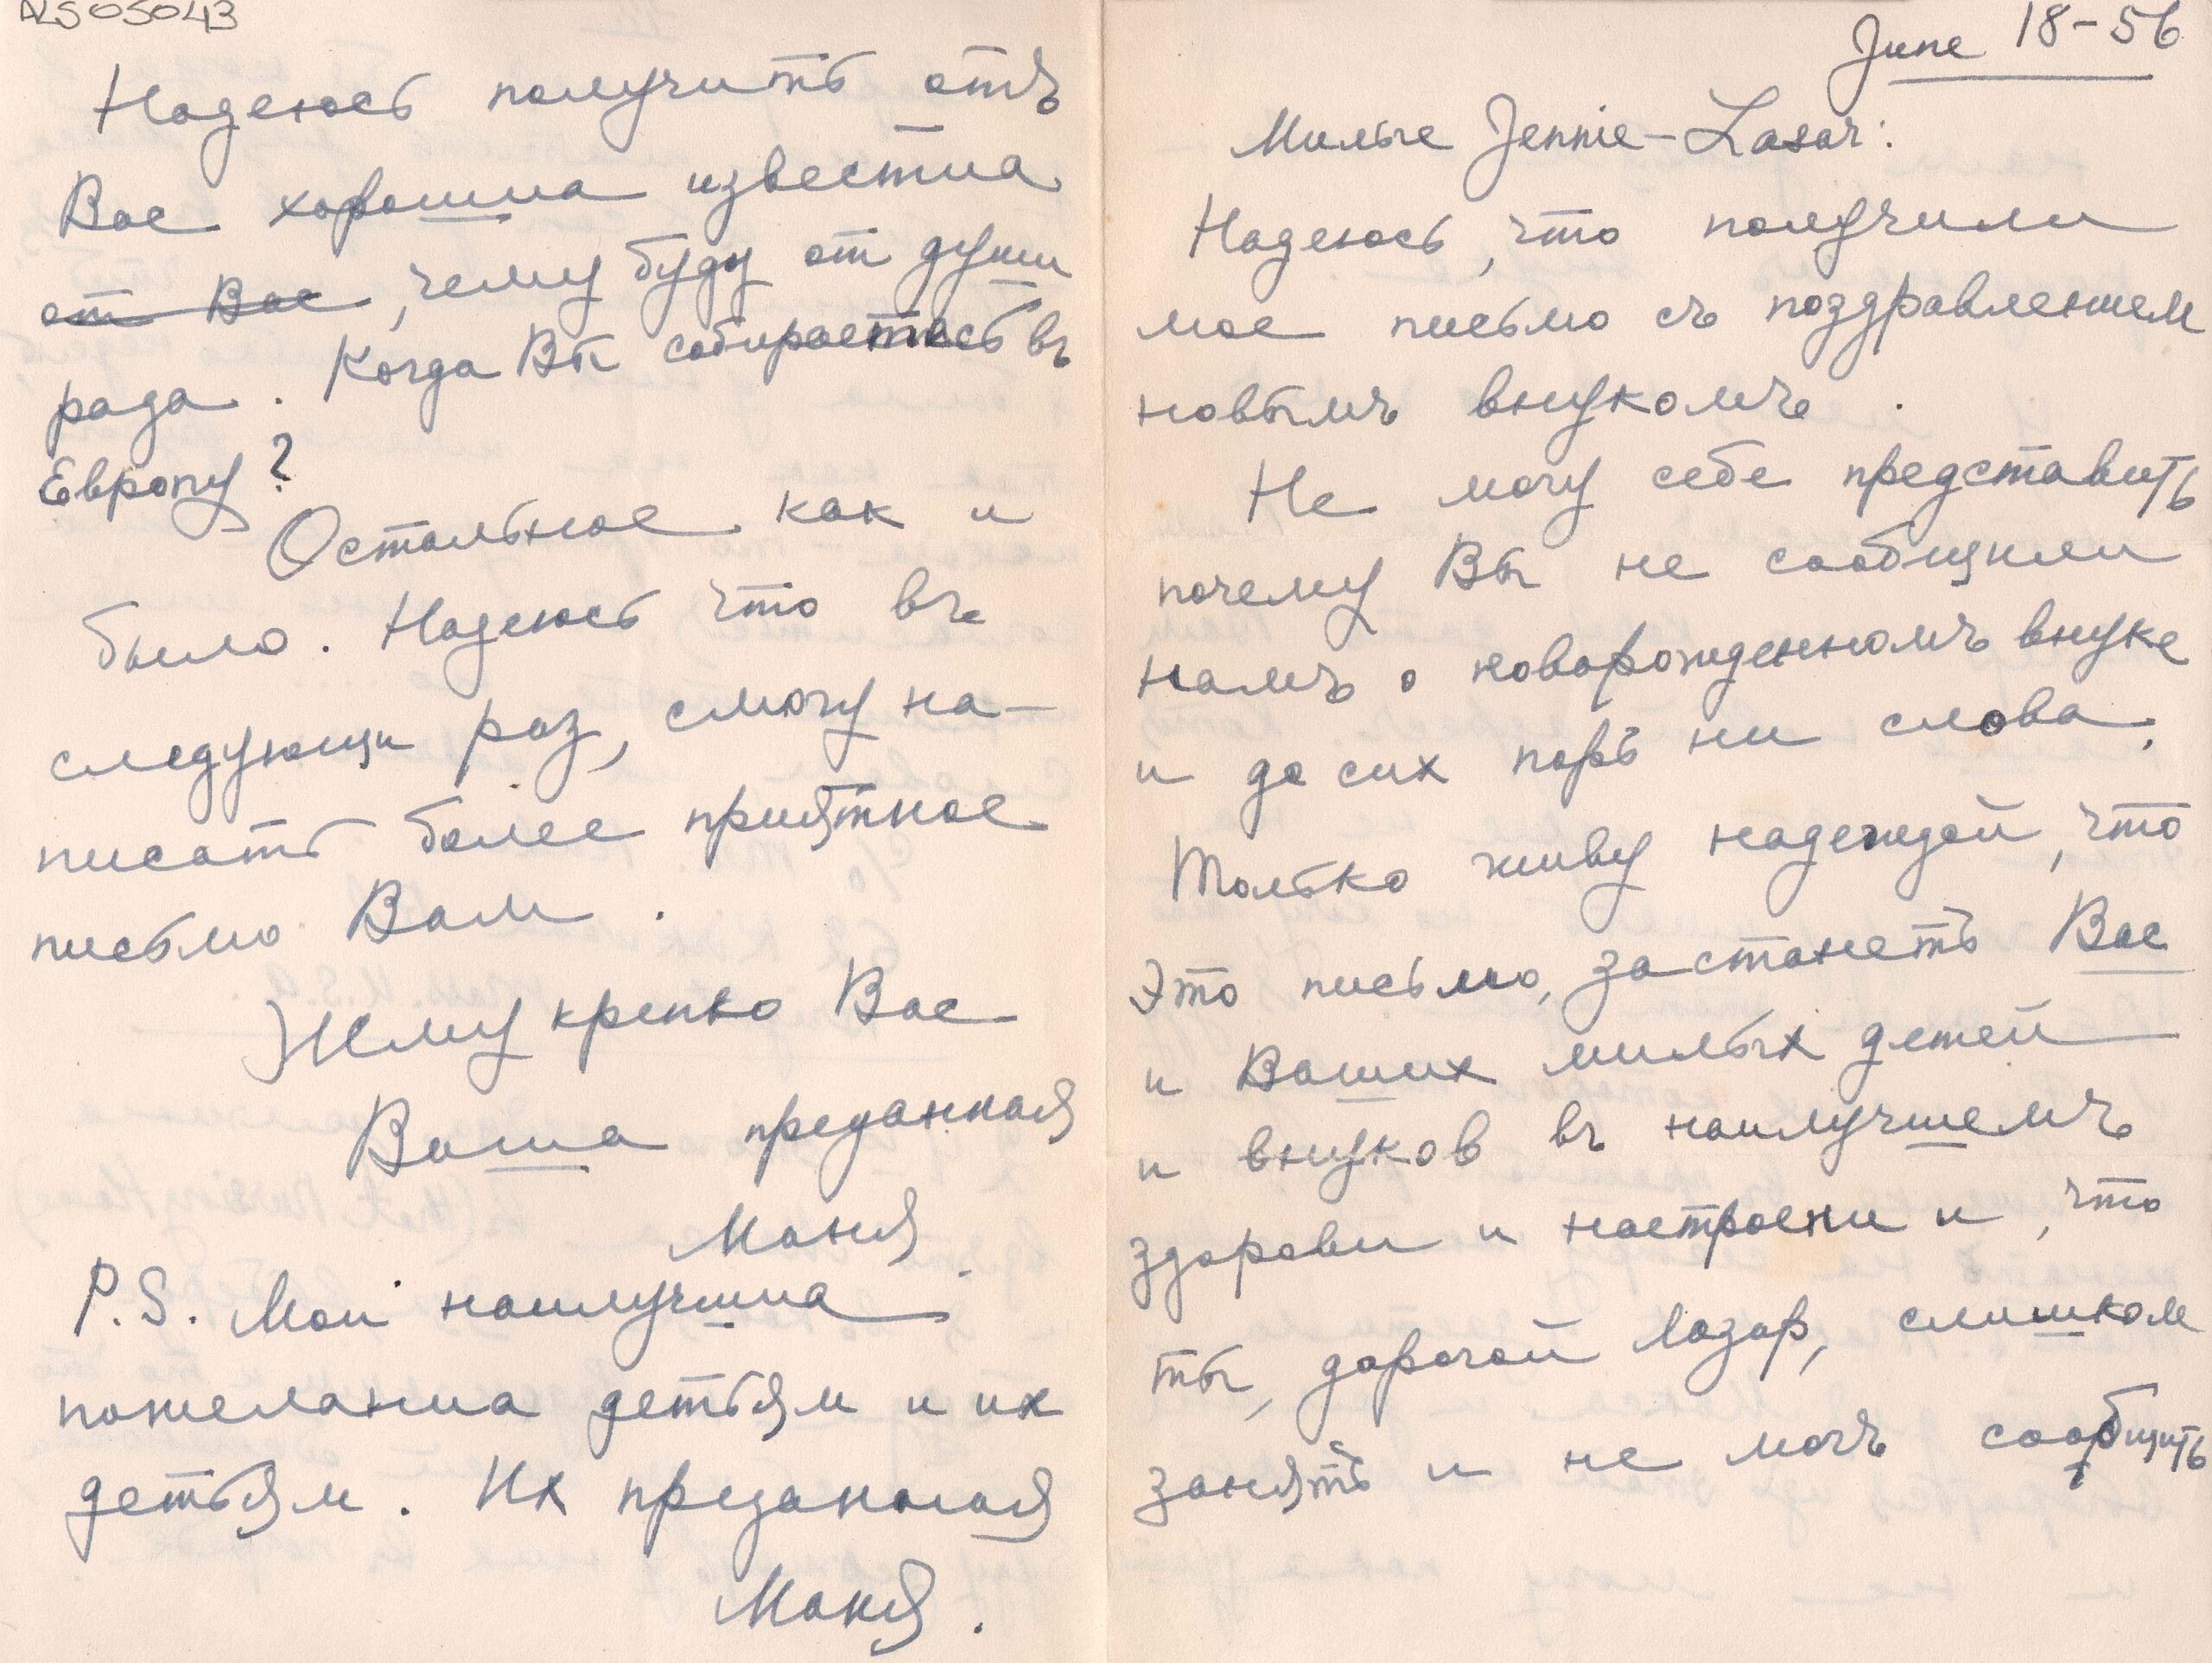 ALS05043
June 18-56
Милые Jennie-Lasar:
Надеюсь, что получили
мое письмо съ поздравлением
новымъ внукомъ.
Не могу себе представить
почему Вы не сообщили
намъ о новорожденномъ внуке
и до сих поръ ни слова.
Только живу надеждой, что
это письмо, застанетъ Вас
и Ваших милых детей
и внуков въ наилучшемъ
здорови и настроении, что
ты, дорогой Лазар, слишком
занятъ и не могъ сообщить
Надеюсь получить отъ
Вас хорошиа известиа
от Вас, чему буду от души
рада. Когда Вы собираетесь въ
Европу?
Остальное как и
было. Надеюсь что въ
следующи раз, смогу на-
писать более приятное
письмо Вам.
Жму крепко Вас
Ваша преданная
Маня.
P.S. Мои наилучшиа
пожеланиа детьям и их
детьям. Их преданная
Маня.